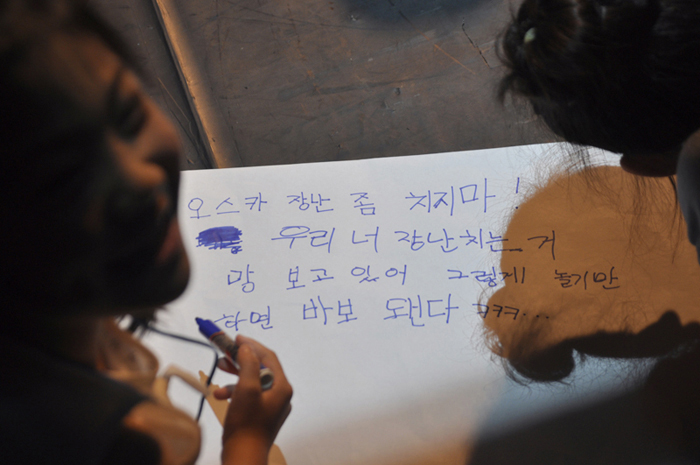 오스카 장난 좀 치지마!
우리 너 장난치는 거
망 보고 있어 그렇게 놀기만
하면 바보 됀다 ㅋㅋㅋ...